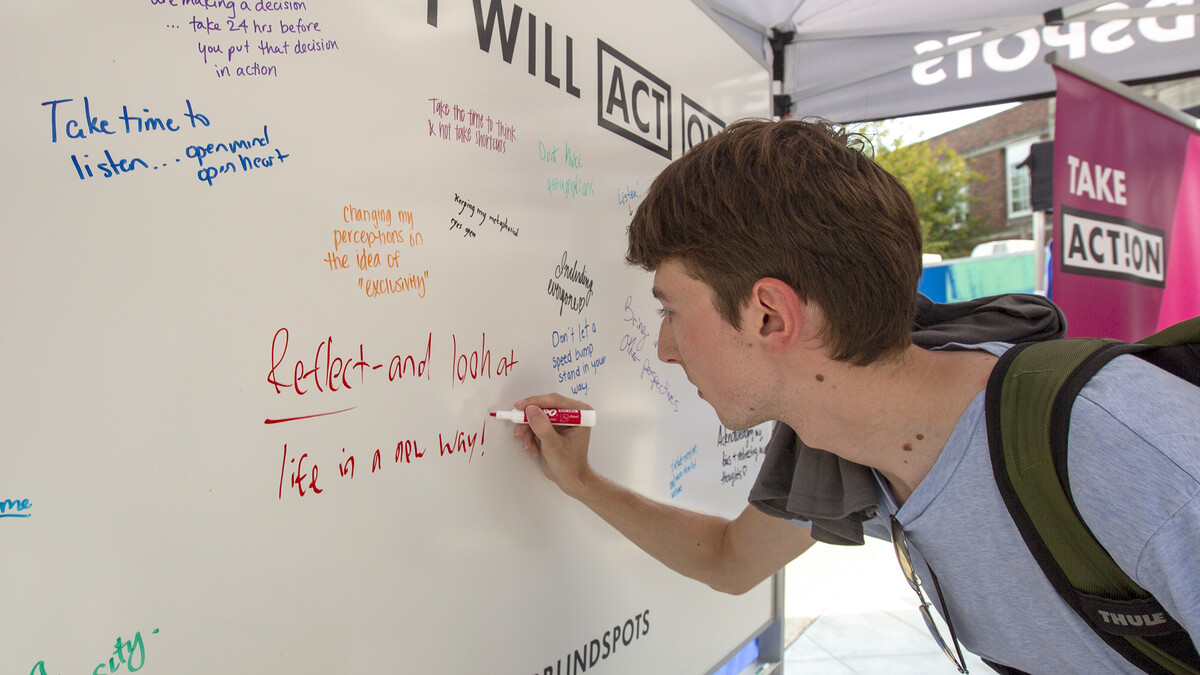 are making a decision
... take 24 hrs before
you put that decision
in action
I WILL ACT ON
Take time to
listen... open mind
open heart
Take the time to think
& not take shortcuts
Don't Make
assumptions
Listen
changing my
perceptions on
the idea of
"exclusivity"
Keeping my metaphorical
eyes open
Including
everyone
Don't let a
speed bump
stand in your
way.
Bring
other
perspectives
Reflect - and look at
life in a new way!
Acknowledging my
bias + reflecting on my
thoughts
me
BLINDSPOTS
DSPOTS
TAKE
ACT!ON
EXPO
THULE